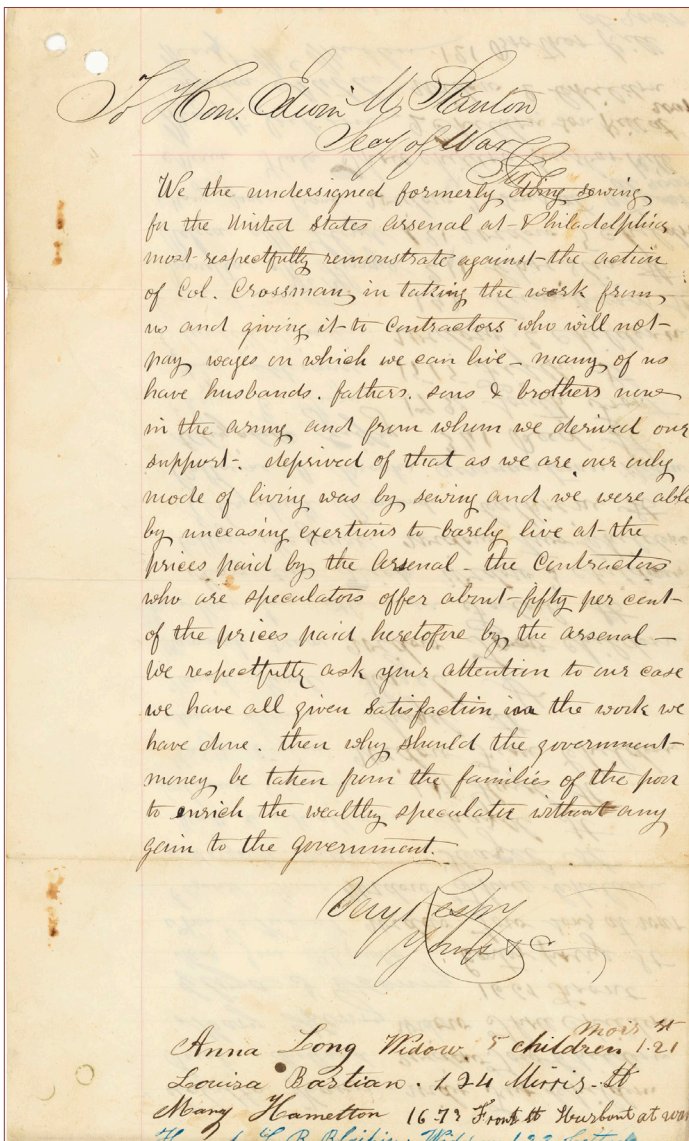 To Hon. Edwin M. Stanton
Secy of War
Sir
We the undersigned formerly doing sewing
for the United States Arsenal at Philadelphia
most respectfully remonstrate against the action
of Col. Crossman, in taking the work from
us and giving it to Contractors who will not
pay wages on which we can live – many of us
have husbands. fathers. sons & brothers now
in the army and from whom we derived our
support. deprived of that as we are our only
mode of living was by sewing and we were able
by unceasing exertions to barely live at the
prices paid by the Arsenal – the Contractors
who are speculators offer about fifty per cent
of the prices paid heretofore by the arsenal –
We respectfully ask your attention to our case
we have all given Satisfaction in the work we
have done. then why should the government
money be taken from the families of the poor
to enrich the wealthy speculator without any
gain to the government.
Very Respy
Yours &c
Anna Long Widow. 5 children 121 Mois st
Louisa Bastian. 124 Mirris. St
Mary Hamelton 1673 Front st Husbont at war